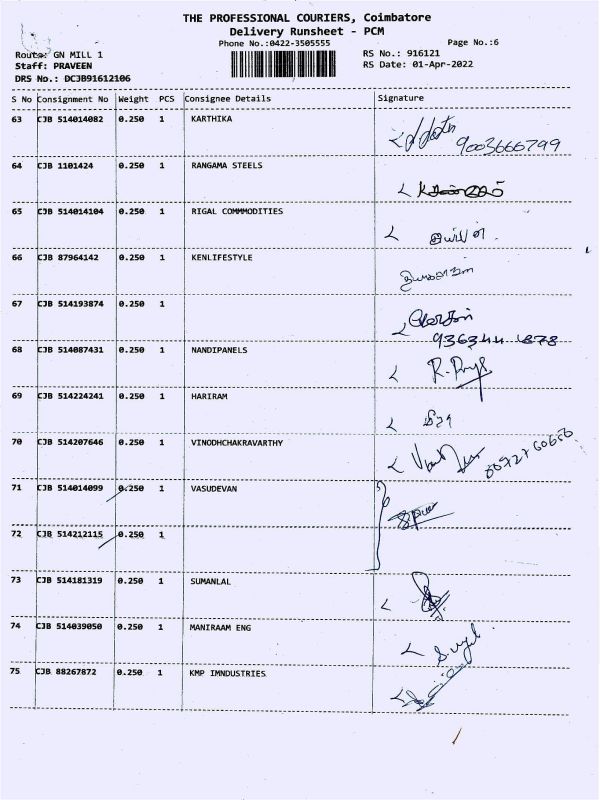 THE PROFESSIONAL COURIERS, Coimbatore
Delivery Runsheet - PCM
Phone No.:0422-3505555 Page No.:6
Route: GN MILL 1 RS No.: 916121
Staff: PRAVEEN RS Date: 01-Apr-2022
DRS No.: DCJB91612106
S No Consignment No Weight PCS Consignee Details Signature
63 CJB 514014082 0.250 1 KARTHIKA
9003666799
64 CJB 1101424 0.250 1 RANGAMA STEELS
65 CJB 514014104 0.250 1 RIGAL COMMMODITIES
66 CJB 87964142 0.250 1 KENLIFESTYLE
67 CJB 514193874 0.250 1
68 CJB 514087431 0.250 1 NANDIPANELS
69 CJB 514224241 0.250 1 HARIRAM
70 CJB 514207646 0.250 1 VINODHCHAKRAVARTHY
71 CJB 514014099 0.250 1 VASUDEVAN
72 CJB 514212115 0.250 1
73 CJB 514181319 0.250 1 SUMANLAL
74 CJB 514039050 0.250 1 MANIRAAM ENG
75 CJB 88267872 0.250 1 KMP IMNDUSTRIES